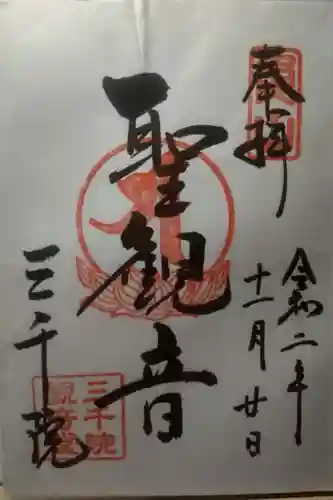 奉拝
令和二年
十一月廿日
聖観音
三千院
三千院
観音堂